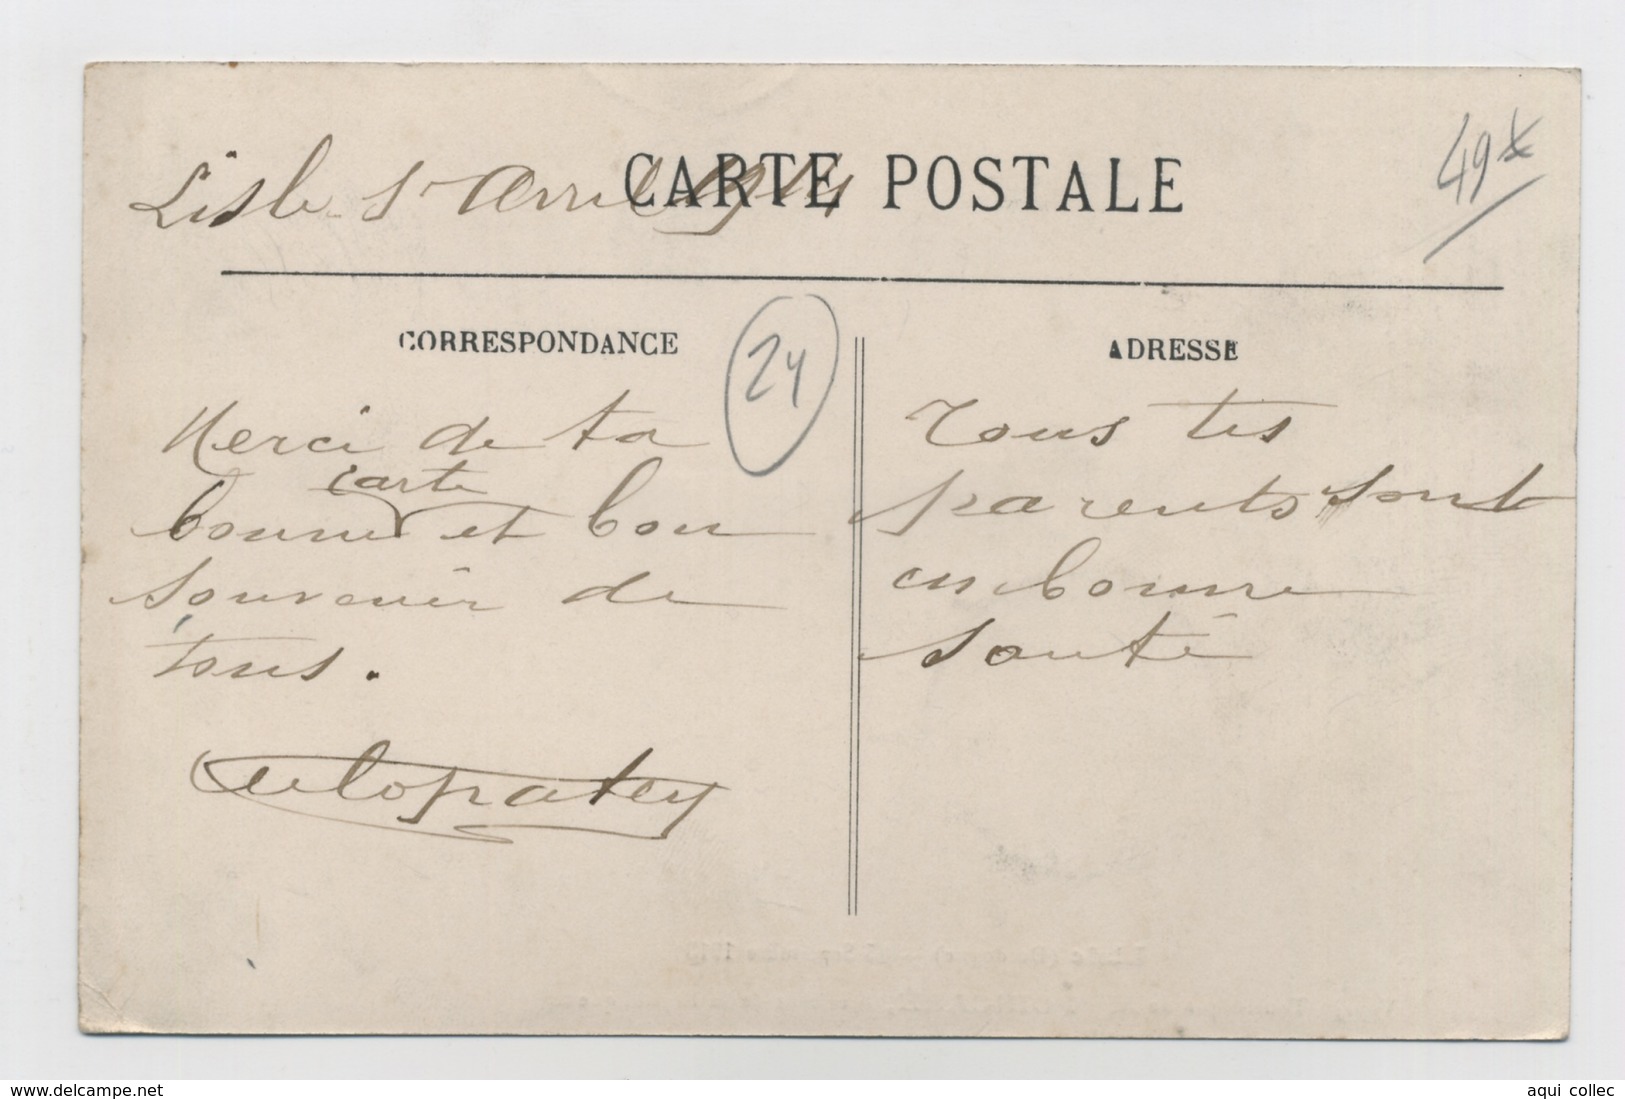 Lisle 1er Avril 1914
CARTE POSTALE
49 x
CORRESPONDANCE
24
Merci de ta
carte
bonne et bon
souvenir de
tous.
ADRESSE
Tous tes
parents sont
en bonne
santé
www.delcampe.net
aqui collec